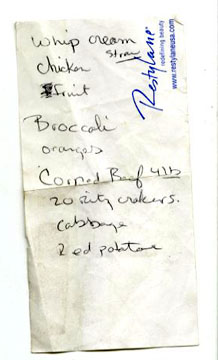 Whip cream
Straw
Chicken
Fruit
Broccoli
oranges
Corned Beef 4 lb
20 ritz crakers.
cabbage
Red potatoe
Restylane
redefining beauty
www.restylaneusa.com